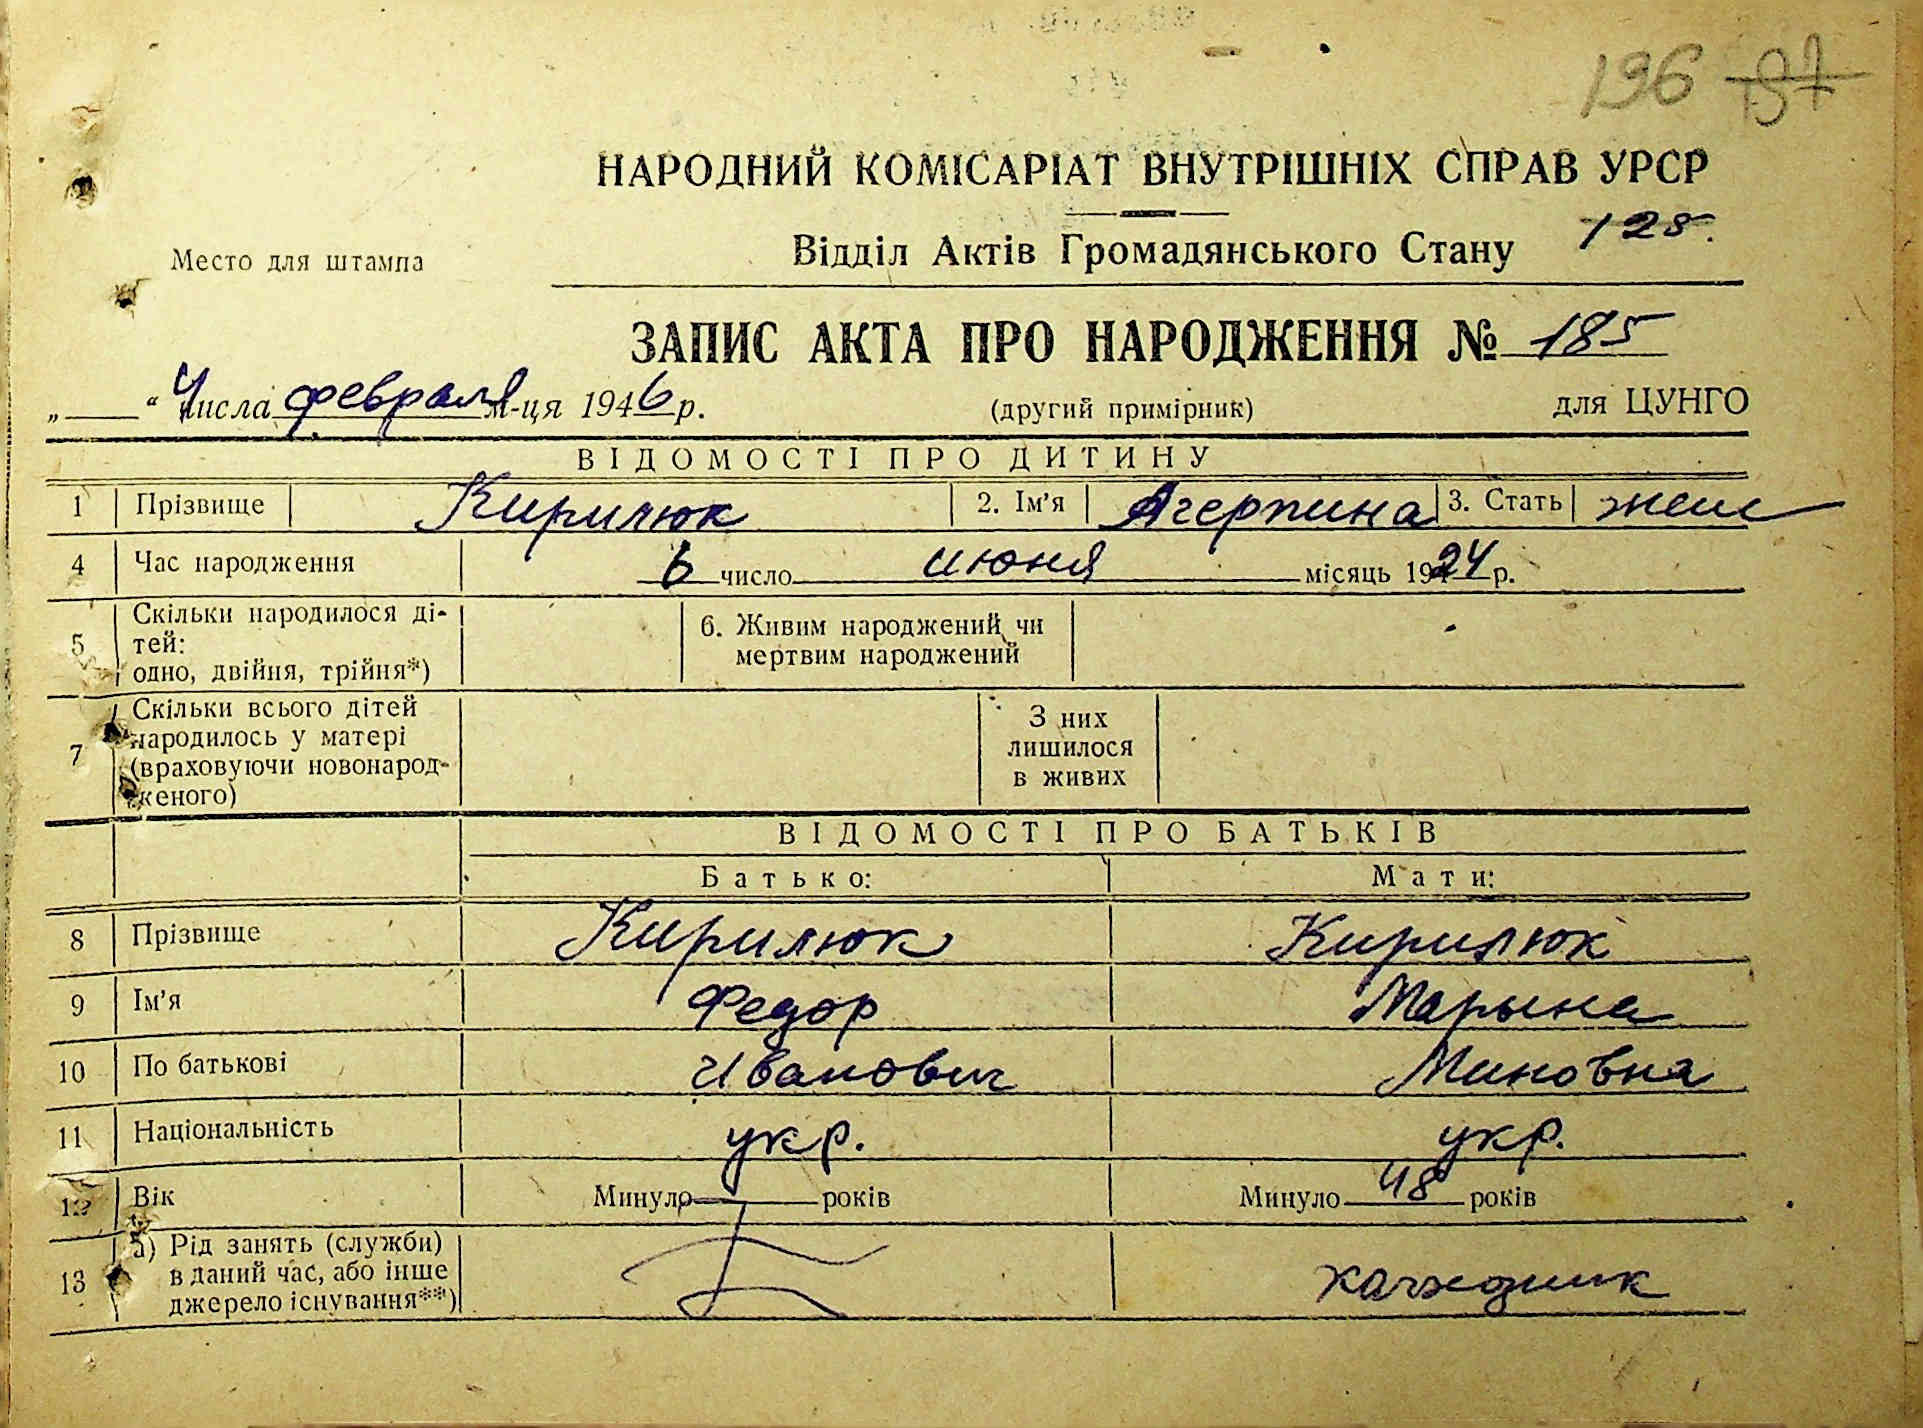 196 197
НАРОДНИЙ КОМІСАРІАТ ВНУТРІШНІХ СПРАВ УРСР
Место для штампа
Відділ Актів Громадянського Стану 125.
ЗАПИС АКТА ПРО НАРОДЖЕННЯ № 185
„ “ 4 числа февраля м-ця 1946 р. (другий примірник) для ЦУНГО
ВІДОМОСТІ ПРО ДИТИНУ
1 Прізвище Кирилюк 2. Ім'я 3. Стать жен
4 Час народження 6 число июня місяць 1924 р.
5 Скільки народилося ді-
тей:
одно, двійня, трійня*)
6. Живим народжений чи
мертвим народжений
7 Скільки всього дітей
народилось у матері
(враховуючи новонарод-
женого)
З них
лишилося
в живих
ВІДОМОСТІ ПРО БАТЬКІВ
Батько: Мати:
8 Прізвище Кирилюк Кирилюк
9 Ім'я Федор Марына
10 По батькові Иванович Миновна
11 Національність укр. укр.
12 Вік Минуло років Минуло 48 років
13 а) Рід занять (служби)
в даний час, або інше
джерело існування**)